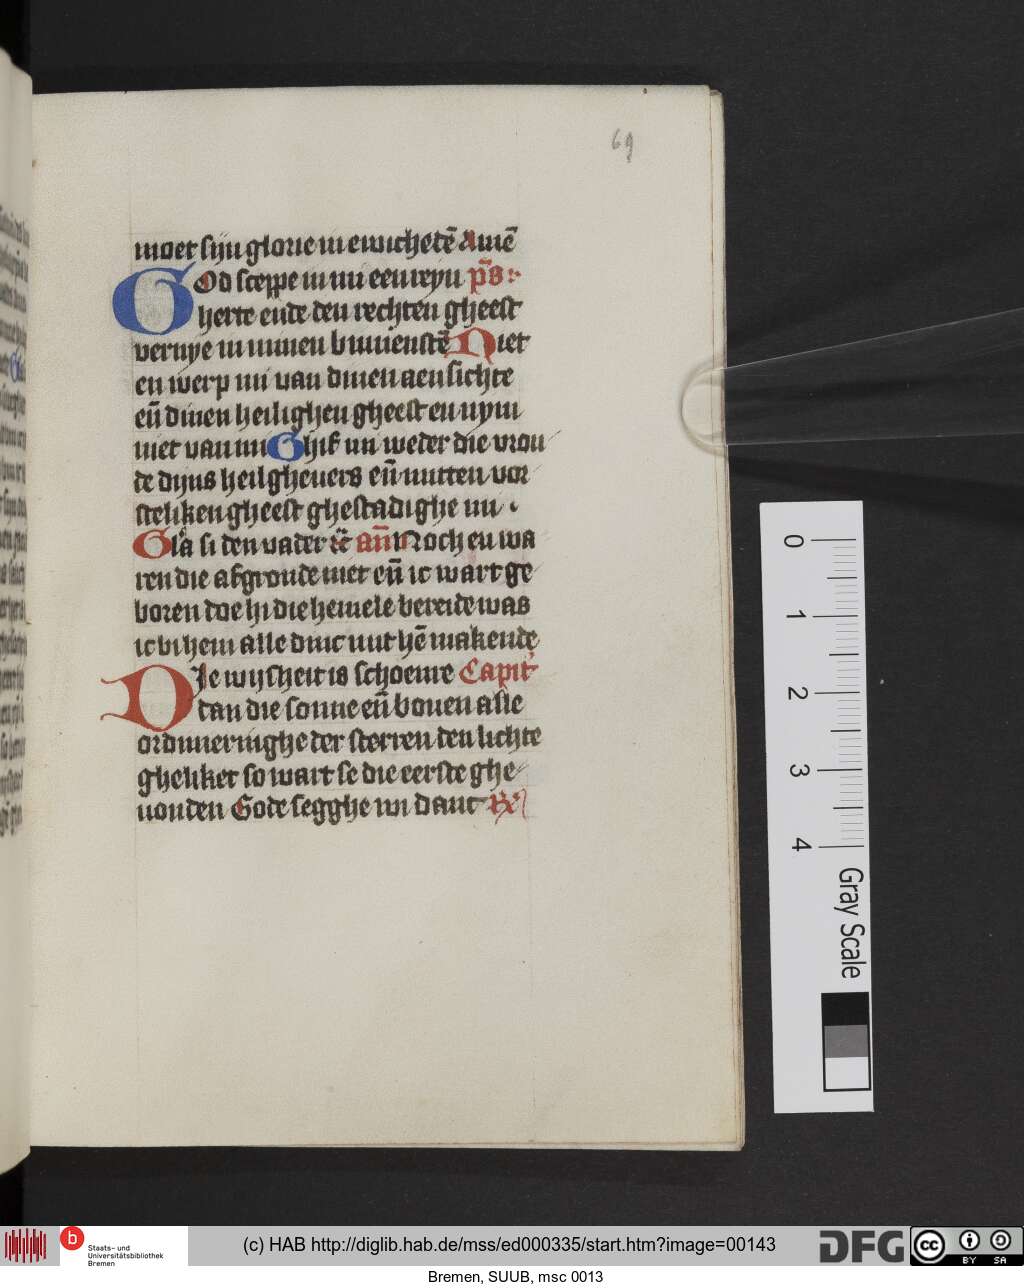 69
moet sijn glorie in ewichetē Amē
GOd sceppe in mi een reyn ps̄
herte ende den rechten gheest
vernye in minen binnenstē Niet
en werp mi van dinen aensichte
eñ dinen heilighen gheest en nym
niet van mi Ghif mi weder die vrou
de dijns heilghevers eñ mitten vor
steliken gheest ghestadighe mi
Glā si den vader zc̄ añ Noch en wa
ren die afgronde niet eñ ic wart ge
boren doe hi die hemele bereide was
ic bi hem alle dinc mit hē makende
DIe wijsheit is schoenre Capit
dan die sonne eñ boven alle
ordinneringhe der sterren den lichte
gheliket so wart se die eerste ghe
vonden Gode segghe wi danc R
0
1
2
3
4
Gray Scale
b
Staats- und
Universitätsbibliothek
Bremen
(c) HAB http://diglib.hab.de/mss/ed000335/start.htm?image=00143
DFG
cc
BY SA
Bremen, SUUB, msc 0013